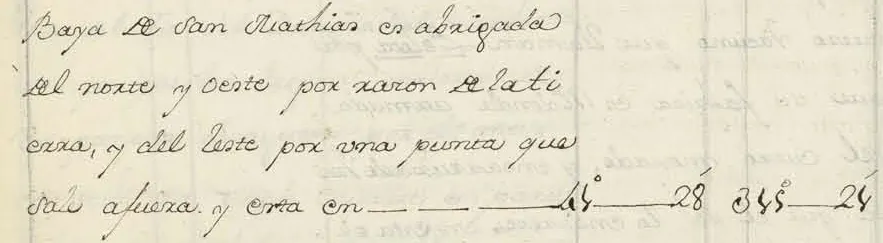 Baya de San Mathias es abrigada
del norte y oeste por razon de la ti
erra, y del leste por vna punta que
sale afuera. y esta en — — — 28 24